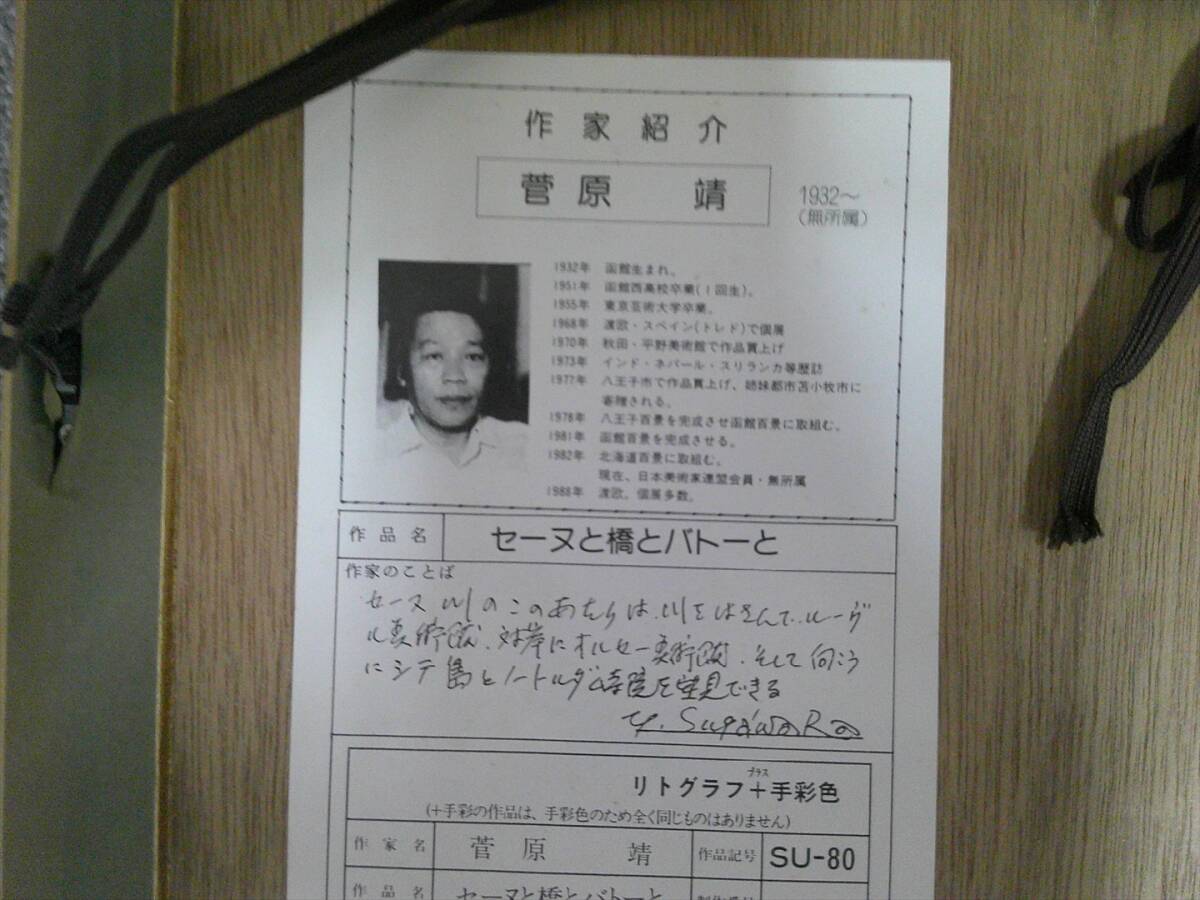 作家紹介
菅原　靖
1932〜
(無所属)
1932年　函館生まれ。
1951年　函館西高校卒業(1回生)。
1955年　東京芸術大学卒業。
1968年　渡欧・スペイン(トレド)で個展
1970年　秋田・平野美術館で作品買上げ
1973年　インド・ネパール・スリランカ等歴訪
1977年　八王子市で作品買上げ、姉妹都市苫小牧市に
寄贈される。
1978年　八王子百景を完成させ函館百景に取組む。
1981年　函館百景を完成させる。
1982年　北海道百景に取組む。
現在、日本美術家連盟会員・無所属
1988年　渡欧。個展多数。
作品名　セーヌと橋とバトーと
作家のことば
セーヌ川のこのあたりは、川をはさんで、ルーヴ
ル美術館、対岸にオルセー美術館、そして向こう
にシテ島とノートルダム寺院を望見できる
Y. SugawaRa
プラス
リトグラフ+手彩色
(+手彩の作品は、手彩色のため全く同じものはありません)
作家名　菅原　靖　作品記号　SU-80
作品名　セーヌと橋とバトーと